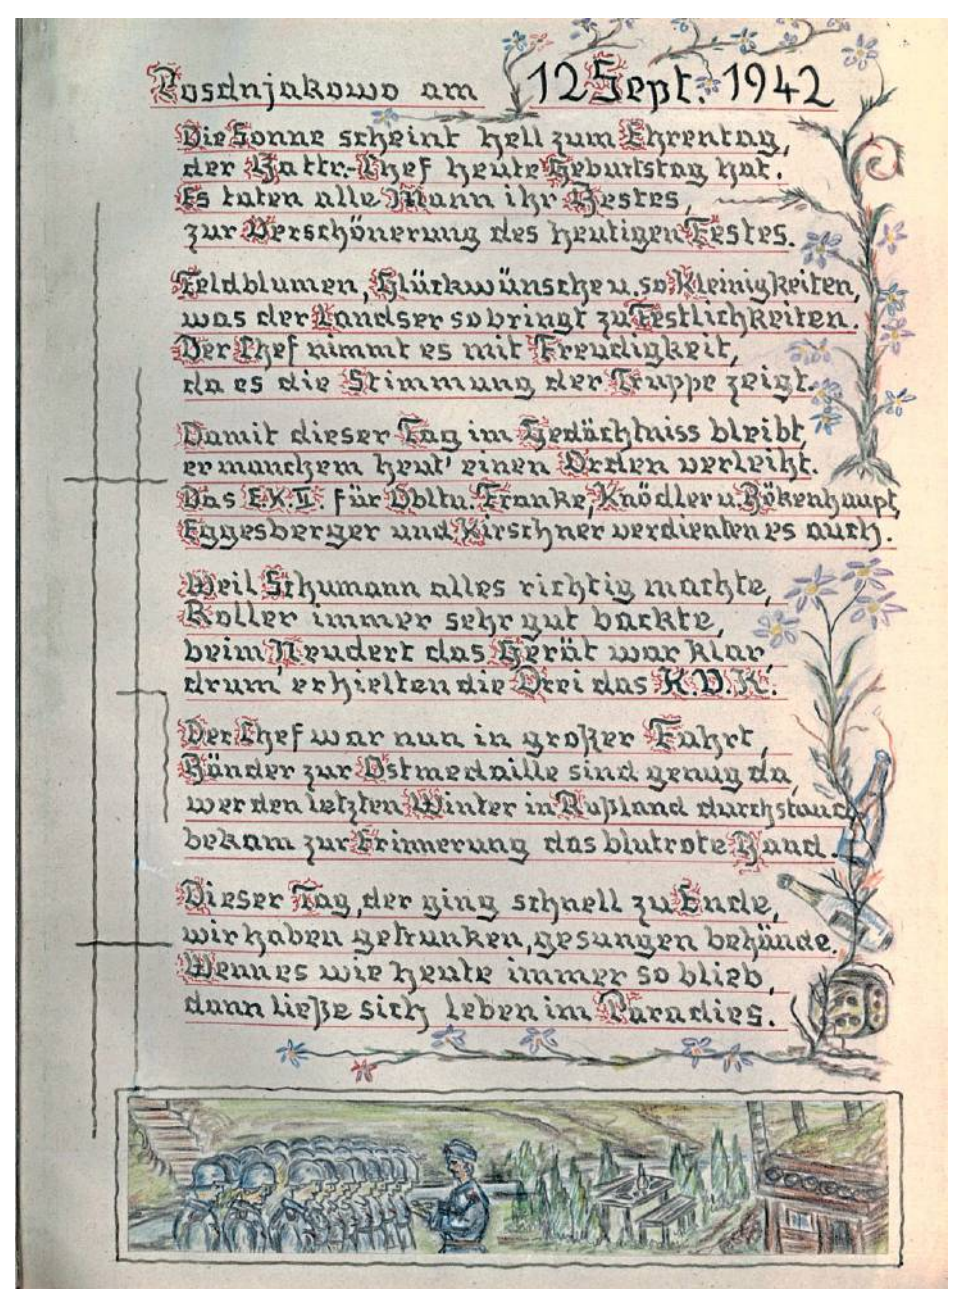 Posdnjakowo am 12 Sept. 1942
Die Sonne scheint hell zum Ehrentag,
der Battr.-Chef heute Geburtstag hat.
Es taten alle Mann ihr Bestes,
zur Verschönerung des heutigen Festes.
Feldblumen, Glückwünsche u. so Kleinigkeiten,
was der Landser so bringt zu Festlichkeiten.
Der Chef nimmt es mit Freudigkeit,
da es die Stimmung der Truppe zeigt.
Damit dieser Tag im Gedächtniss bleibt,
er manchem heut' einen Orden verleiht.
Das E.K.II. für Obltn. Franke, Knödler u. Bökenhaupt,
Eggesberger und Kirschner verdienten es auch.
Weil Schumann alles richtig machte,
Roller immer sehr gut backte,
beim Neudert das Gerät war klar,
drum' erhielten die Drei das K.V.K.
Der Chef war nun in großer Fahrt,
Bänder zur Ostmedaille sind genug da,
wer den letzten Winter in Rußland durchstand,
bekam zur Erinnerung das blutrote Band.
Dieser Tag, der ging schnell zu Ende,
wir haben getrunken, gesungen behände.
Wenn es wie heute immer so blieb,
dann ließe sich leben im Paradies.